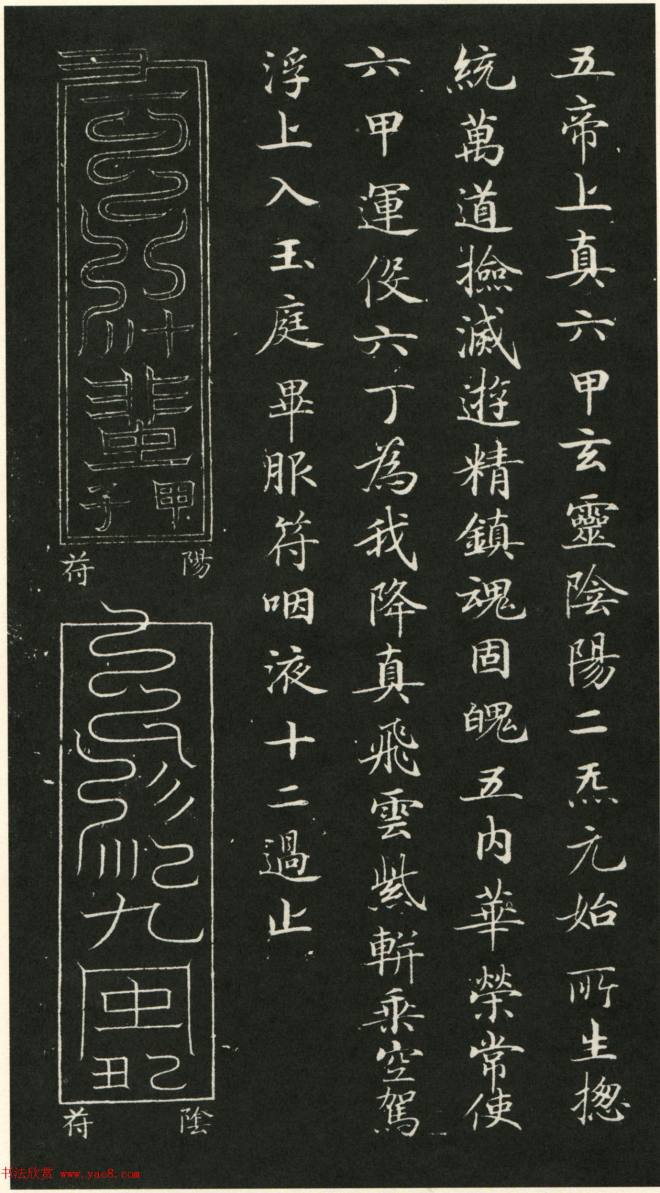 五帝上真六甲玄靈陰陽二炁元始所生揔
統萬道撿滅遊精鎮魂固魄五内華榮常使
六甲運役六丁為我降真飛雲紫軿乗空駕
浮上入玉庭畢服符咽液十二過止
甲子
陽符
乙丑
陰符
书法欣赏 www.yac8.com